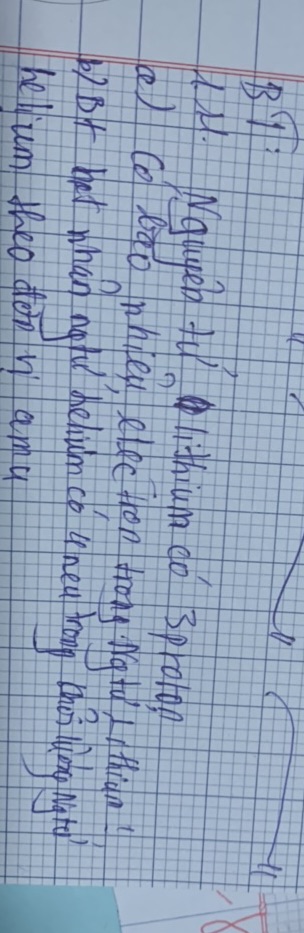 BT:
1 H. Nguyên tử lithium có 3 proton
a) Có bao nhiêu electron trong Ngtử Lithium!
b) Bt hạt nhân ngtử helium có 4 neu trong khối lượng Ngtử
helium theo đơn vị amu